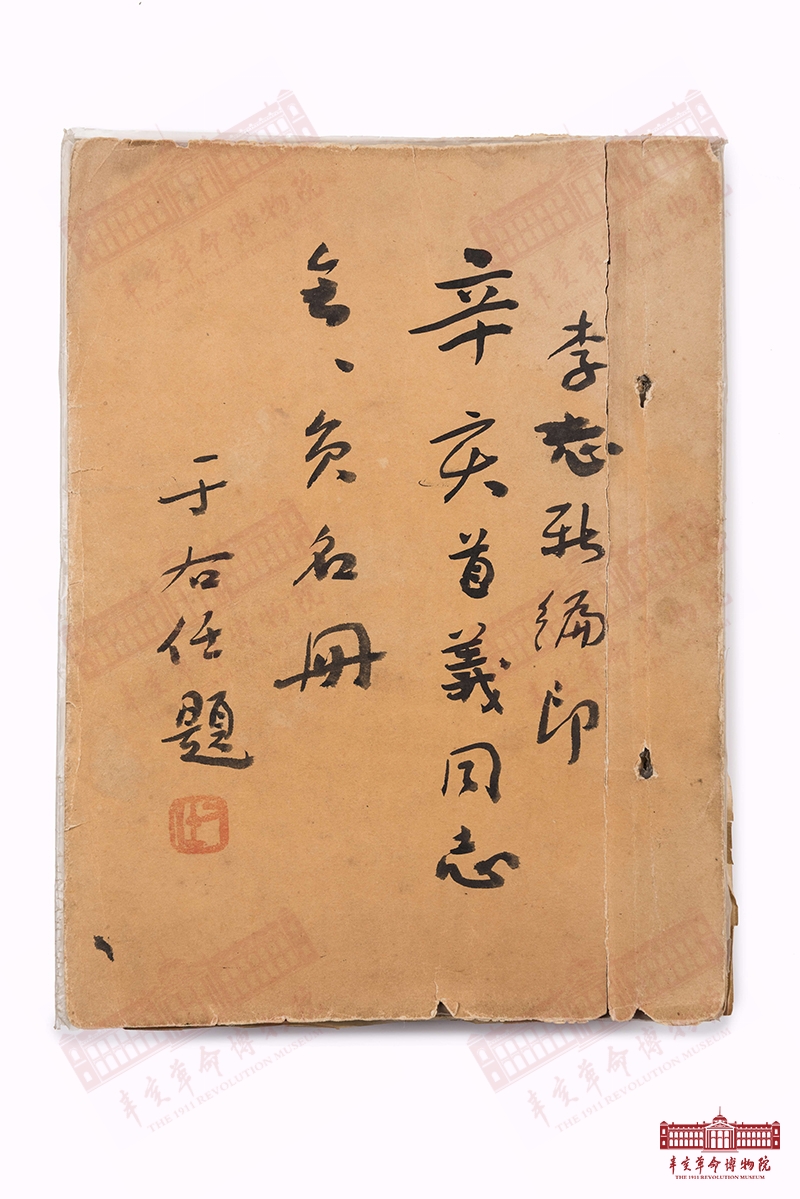 李志新編印
辛亥首義同志
會、員名册
于右任題
辛亥革命博物院
THE 1911 REVOLUTION MUSEUM